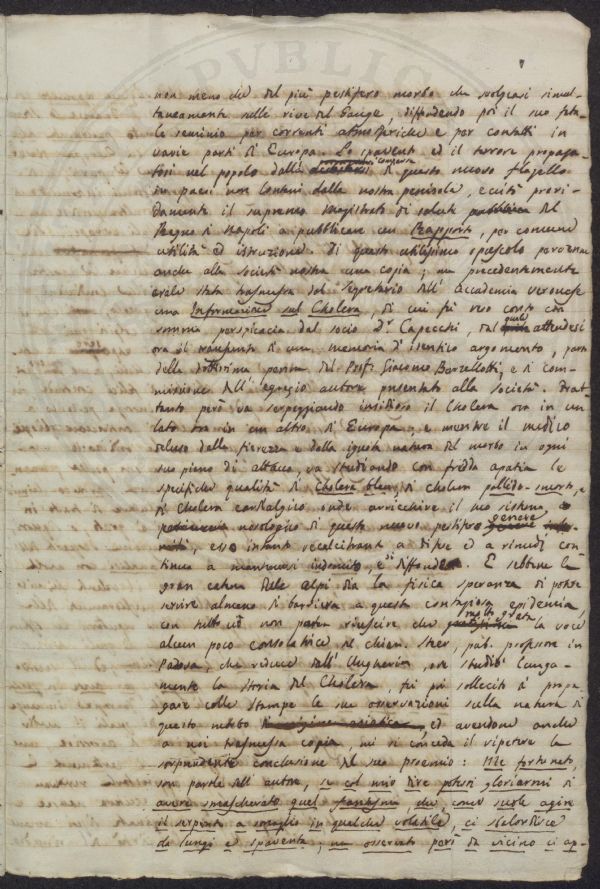 non meno che del più pestifero morbo che svolgeasi simul-
taneamente sulle rive del Gange, diffondendo poi il suo fata-
le seminio per correnti atmosferiche e per contatti in
varie parti di Europa. Lo spavento ed il terrore propaga-
tosi nel popolo dalla comparsa di questo nuovo flagello
in paesi non lontani dalla nostra penisola, eccitò provi-
damente il supremo Magistrato di salute pubblica del
Regno di Napoli a pubblicare un Rapporto, per comune
utilità ed istruzione. Di questo utilissimo opuscolo pervenne
anche alla società nostra una copia; ma precedentemente
erale stata trasmessa dal Segretario dell' Accademia veronese
una Informazione sul Cholera, di cui fu reso conto con
somma perspicacia dal socio Dr. Capecchi, dal quale attendesi
ora il transunto di una memoria d' identico argomento, parto
della dottissima penna del Prof. Giacomo Barzellotti, e di com-
missione dell' egregio autore presentata alla società. Frat-
tanto però va serpeggiando insidioso il Cholera ora in un
lato ora in un altro di Europa; e mentre il medico
deluso dalla fierezza e dalla ignota natura del morbo in ogni
suo piano di attacco, va studiando con fredda apatia le
specifiche qualità di Cholera bleu, di cholera pallido-smorto, e
di Cholera cardialgico onde arricchire il suo sistema
nosologico di questo nuovo pestifero genere
esso intanto recalcitrante a dighe ed a rimedj con-
tinua a mantenersi indomito, e di diffonde. E sebbene la
gran catena delle alpi dia la fisica speranza di poter
servire almeno di barriera a questa contagiosa epidemia,
con tutto ciò non potea riuscire che molto grata la voce
alcun poco consolatrice del chiar. Steer, pub. professore in
Padova, che reduce dall' Ungheria, ove studiò lunga-
mente la storia del Cholera, fu più sollecito a propa-
gare colle stampe le sue osservazioni sulla natura di
questo morbo di origine asiatica, ed avendone anche
a noi trasmessa copia, mi si conceda il ripetere la
sorprendente conclusione del suo proemio: Me fortunato,
son parole dell' autore, se col mio dire potessi gloriarmi di
avere smascherato quel fantasma che, come suole agire
il serpente a sonaglio in qualche volatile, ci sbalordisce
da lungi ed spaventa; ma osservato poi da vicino ci ap-